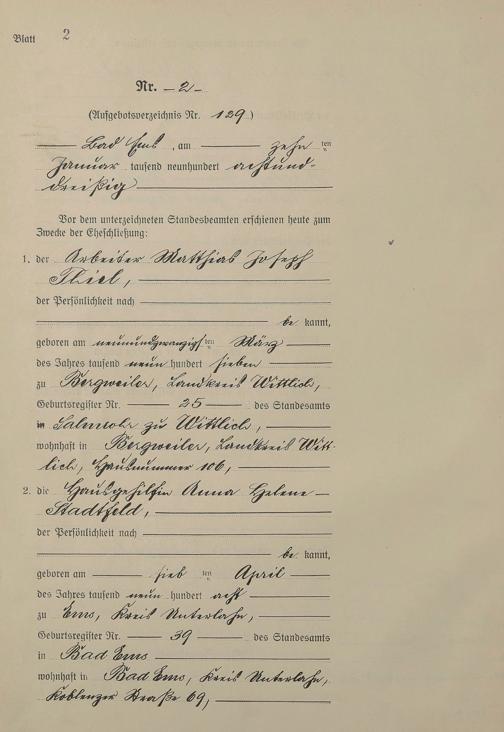 Blatt 2
Nr. 2
(Aufgebotsverzeichnis Nr. 129)
Bad Ems, am zehn ten
Januar tausend neunhundert achtund-
dreißig
Vor dem unterzeichneten Standesbeamten erschienen heute zum
Zwecke der Eheschließung:
1. der Arbeiter Matthias Joseph
Thiel,
der Persönlichkeit nach
be kannt,
geboren am neunundzwanzigsten März
des Jahres tausend neun hundert sieben
zu Bergweiler, Landkreis Wittlich,
Geburtsregister Nr. 25 des Standesamts
in Salmrohr zu Wittlich,
wohnhaft in Bergweiler, Landkreis Witt-
lich, Hausnummer 106,
2. die Hausgehilfin Anna Helene
Stadtfeld,
der Persönlichkeit nach
be kannt,
geboren am sieb ten April
des Jahres tausend neun hundert acht
zu Ems, Kreis Unterlahn,
Geburtsregister Nr. 39 des Standesamts
in Bad Ems
wohnhaft in Bad Ems, Kreis Unterlahn,
Koblenzer Straße 69,